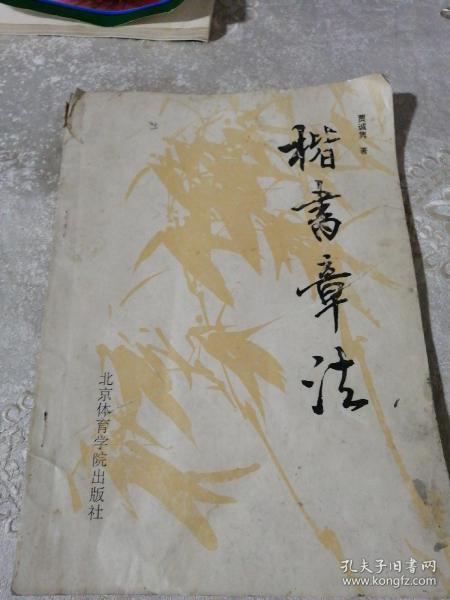 贾诚隽 著
楷书章法
北京体育学院出版社
孔夫子旧书网
www.kongfz.com